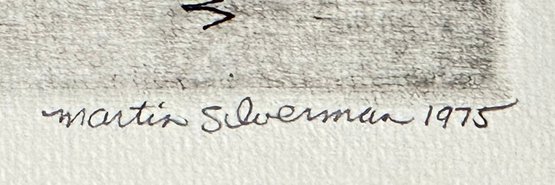 Martin Silverman 1975